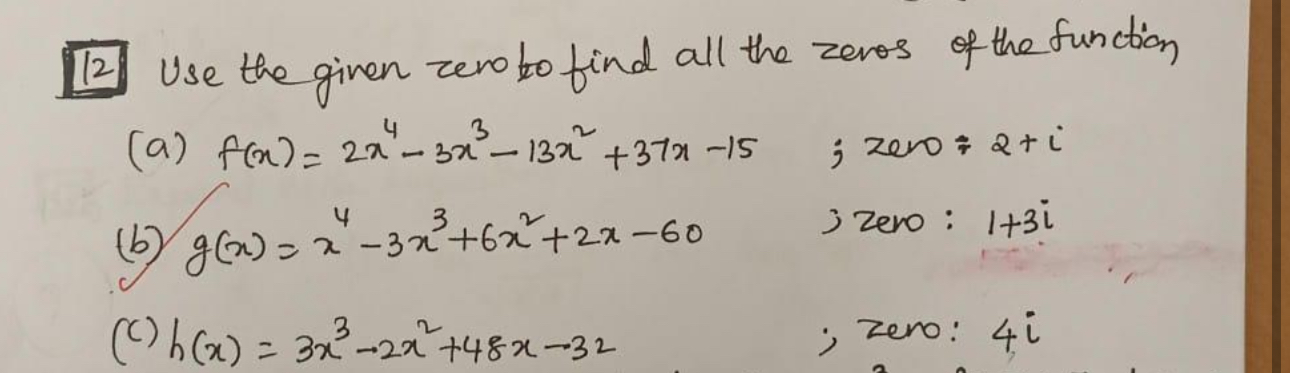 12 Use the given zero to find all the zeros of the function
(a) f(x) = 2x⁴ - 3x³ - 13x² + 37x - 15 ; zero : 2 + i
(b) g(x) = x⁴ - 3x³ + 6x² + 2x - 60 ; zero : 1+3i
(c) h(x) = 3x³ - 2x² + 48x - 32 ; zero : 4i